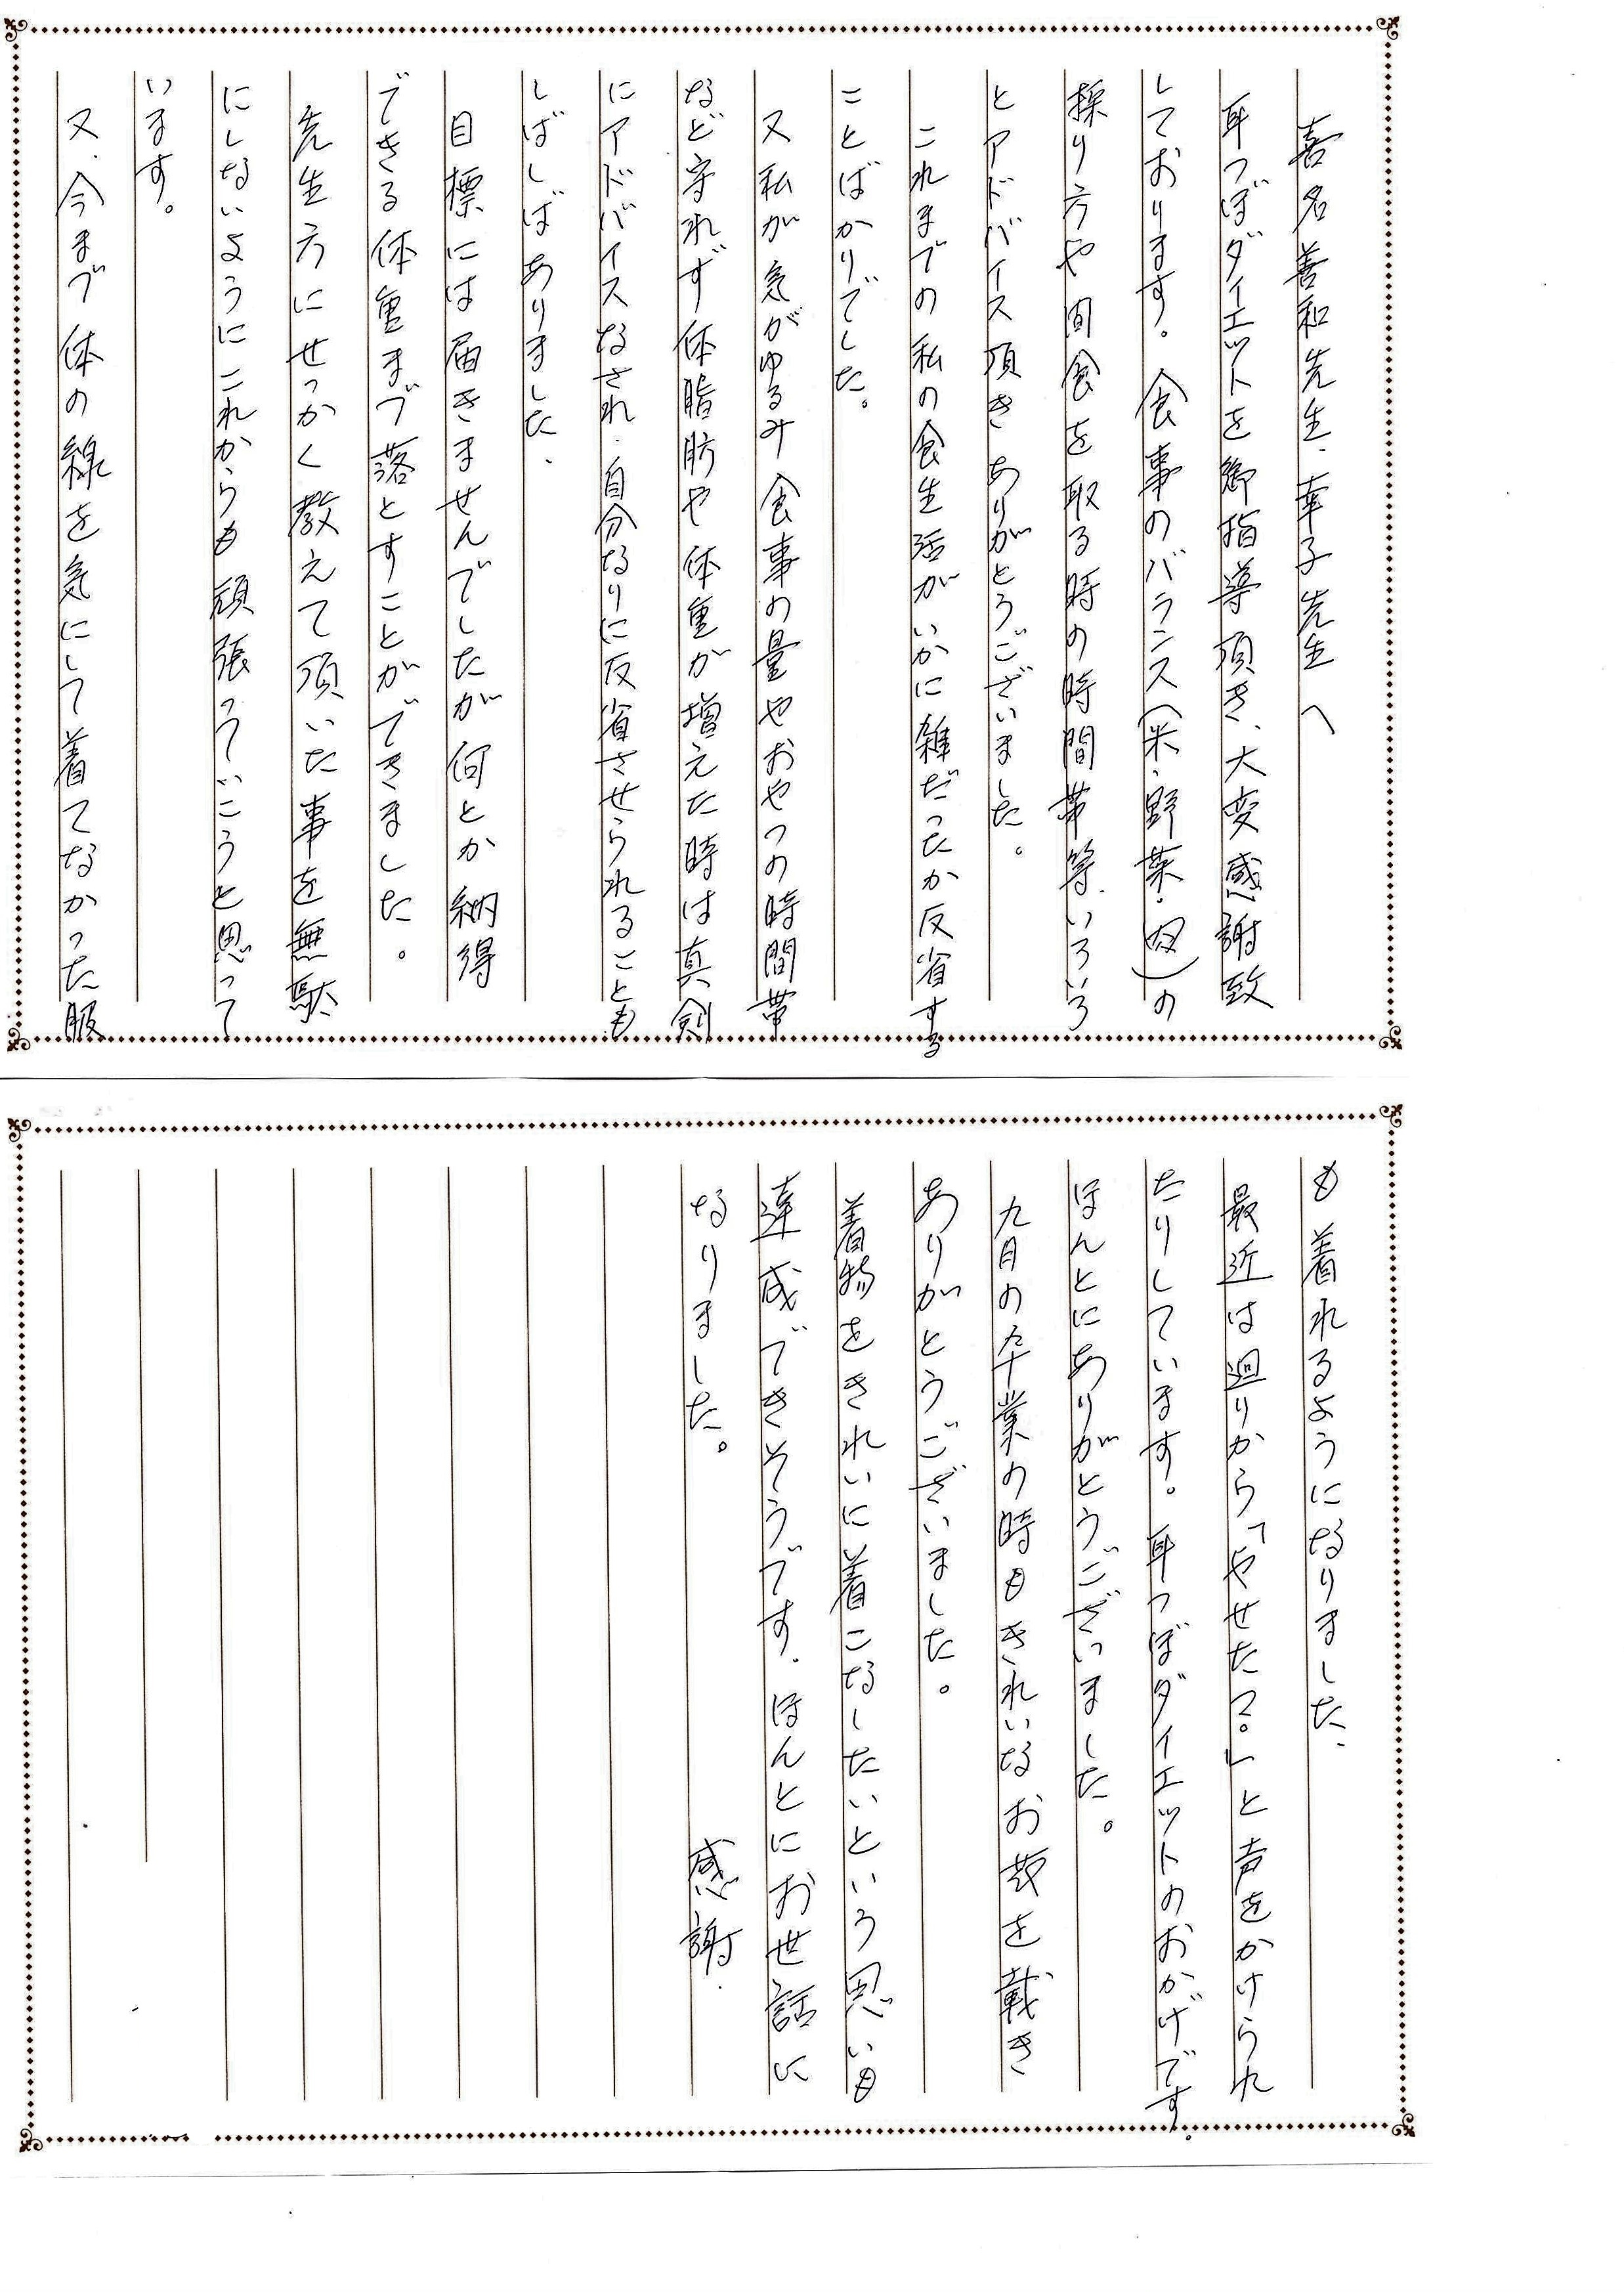 喜名善和先生・幸子先生へ
耳つぼダイエットを御指導頂き、大変感謝致
しております。食事のバランス(米・野菜・肉)の
採り方や間食を取る時の時間帯等、いろいろ
とアドバイス頂きありがとうございました。
これまでの私の食生活がいかに雑だったか反省する
ことばかりでした。
又私が気がゆるみ食事の量やおやつの時間帯
など守れず体脂肪や体重が増えた時は真剣
にアドバイスなされ、自分なりに反省させられることも
しばしばありました。
目標には届きませんでしたが何とか納得
できる体重まで落とすことができました。
先生方にせっかく教えて頂いた事を無駄
にしないようにこれからも頑張っていこうと思って
います。
又、今まで体の線を気にして着てなかった服
も着れるようになりました。
最近は廻りから「やせたね。」と声をかけられ
たりしています。耳つぼダイエットのおかげです。
ほんとにありがとうございました。
九月の卒業の時もきれいなお花を戴き
ありがとうございました。
着物をきれいに着こなしたいという思いも
達成できそうです。ほんとにお世話に
なりました。 感謝.